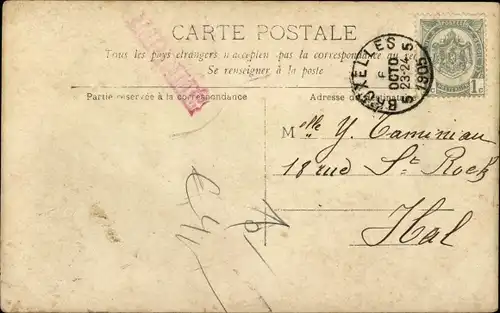 CARTE POSTALE
Tous les pays étrangers n'acceptent pas la correspondance au
Se renseigner à la poste
BRUXELLES 5
6
OCTO
23-24
1905
5
1c
Partie réservée à la correspondance
Adresse
Mlle Y. Taminiau
18 rue St Roch
Hal